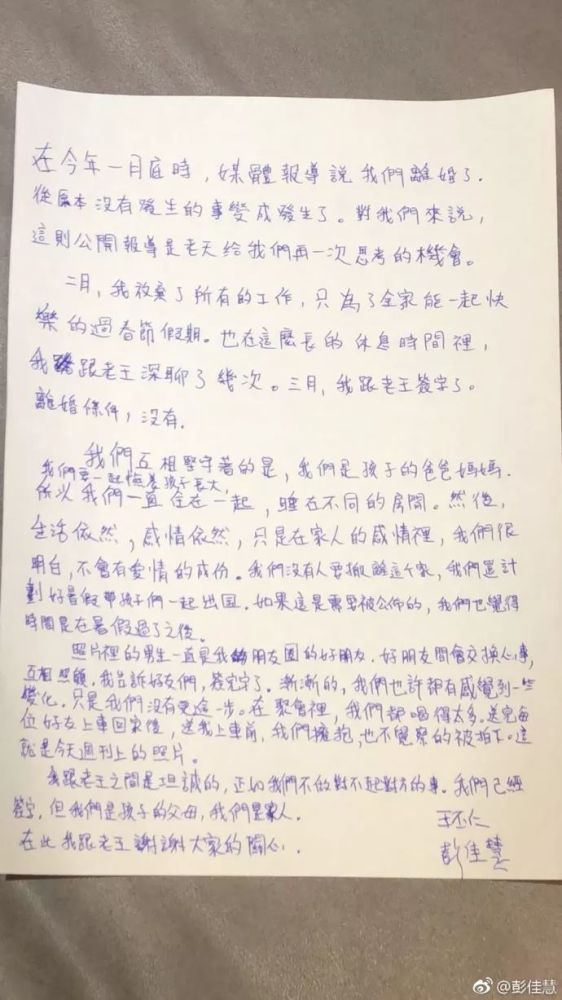 在今年一月底時，媒體報導說我們離婚了．
從原本沒有發生的事變成發生了。對我們來說，
這則公開報導是老天給我們再一次思考的機會。
二月，我放棄了所有的工作，只為了全家能一起快
樂的過春節假期。也在這麼長的休息時間裡，
我跟老王深聊了幾次。三月，我跟老王簽字了。
離婚條件，沒有．
我們互相堅守著的是，我們是孩子的爸爸媽媽．
我們要一起陪著孩子長大，
所以我們一直住在一起，睡在不同的房間。然後，
生活依然，感情依然，只是在家人的感情裡，我們很
明白，不會有愛情的成份。我們沒有人要搬離這個家，我們還計
劃好暑假帶孩子們一起出国．如果這是需要被公佈的，我們也覺得
時間是在暑假過了之後。
照片裡的男生一直是我朋友圈的好朋友．好朋友間會交換心事，
互相照顧．我告訴好友們，簽完字了．漸漸的，我們也許都有感覺到一些
變化．只是我們沒有更進一步。在聚會裡，我們都喝得太多．送完每
位好友上車回家後，送我上車前，我們擁抱，也不覺察的被拍下。這
就是今天週刊上的照片。
我跟老王之間是坦誠的，正如我們不做對不起對方的事．我們已經
簽字，但我們是孩子的父母，我們是家人．
在此我跟老王謝謝大家的關心．
王丕仁
彭佳慧
@彭佳慧